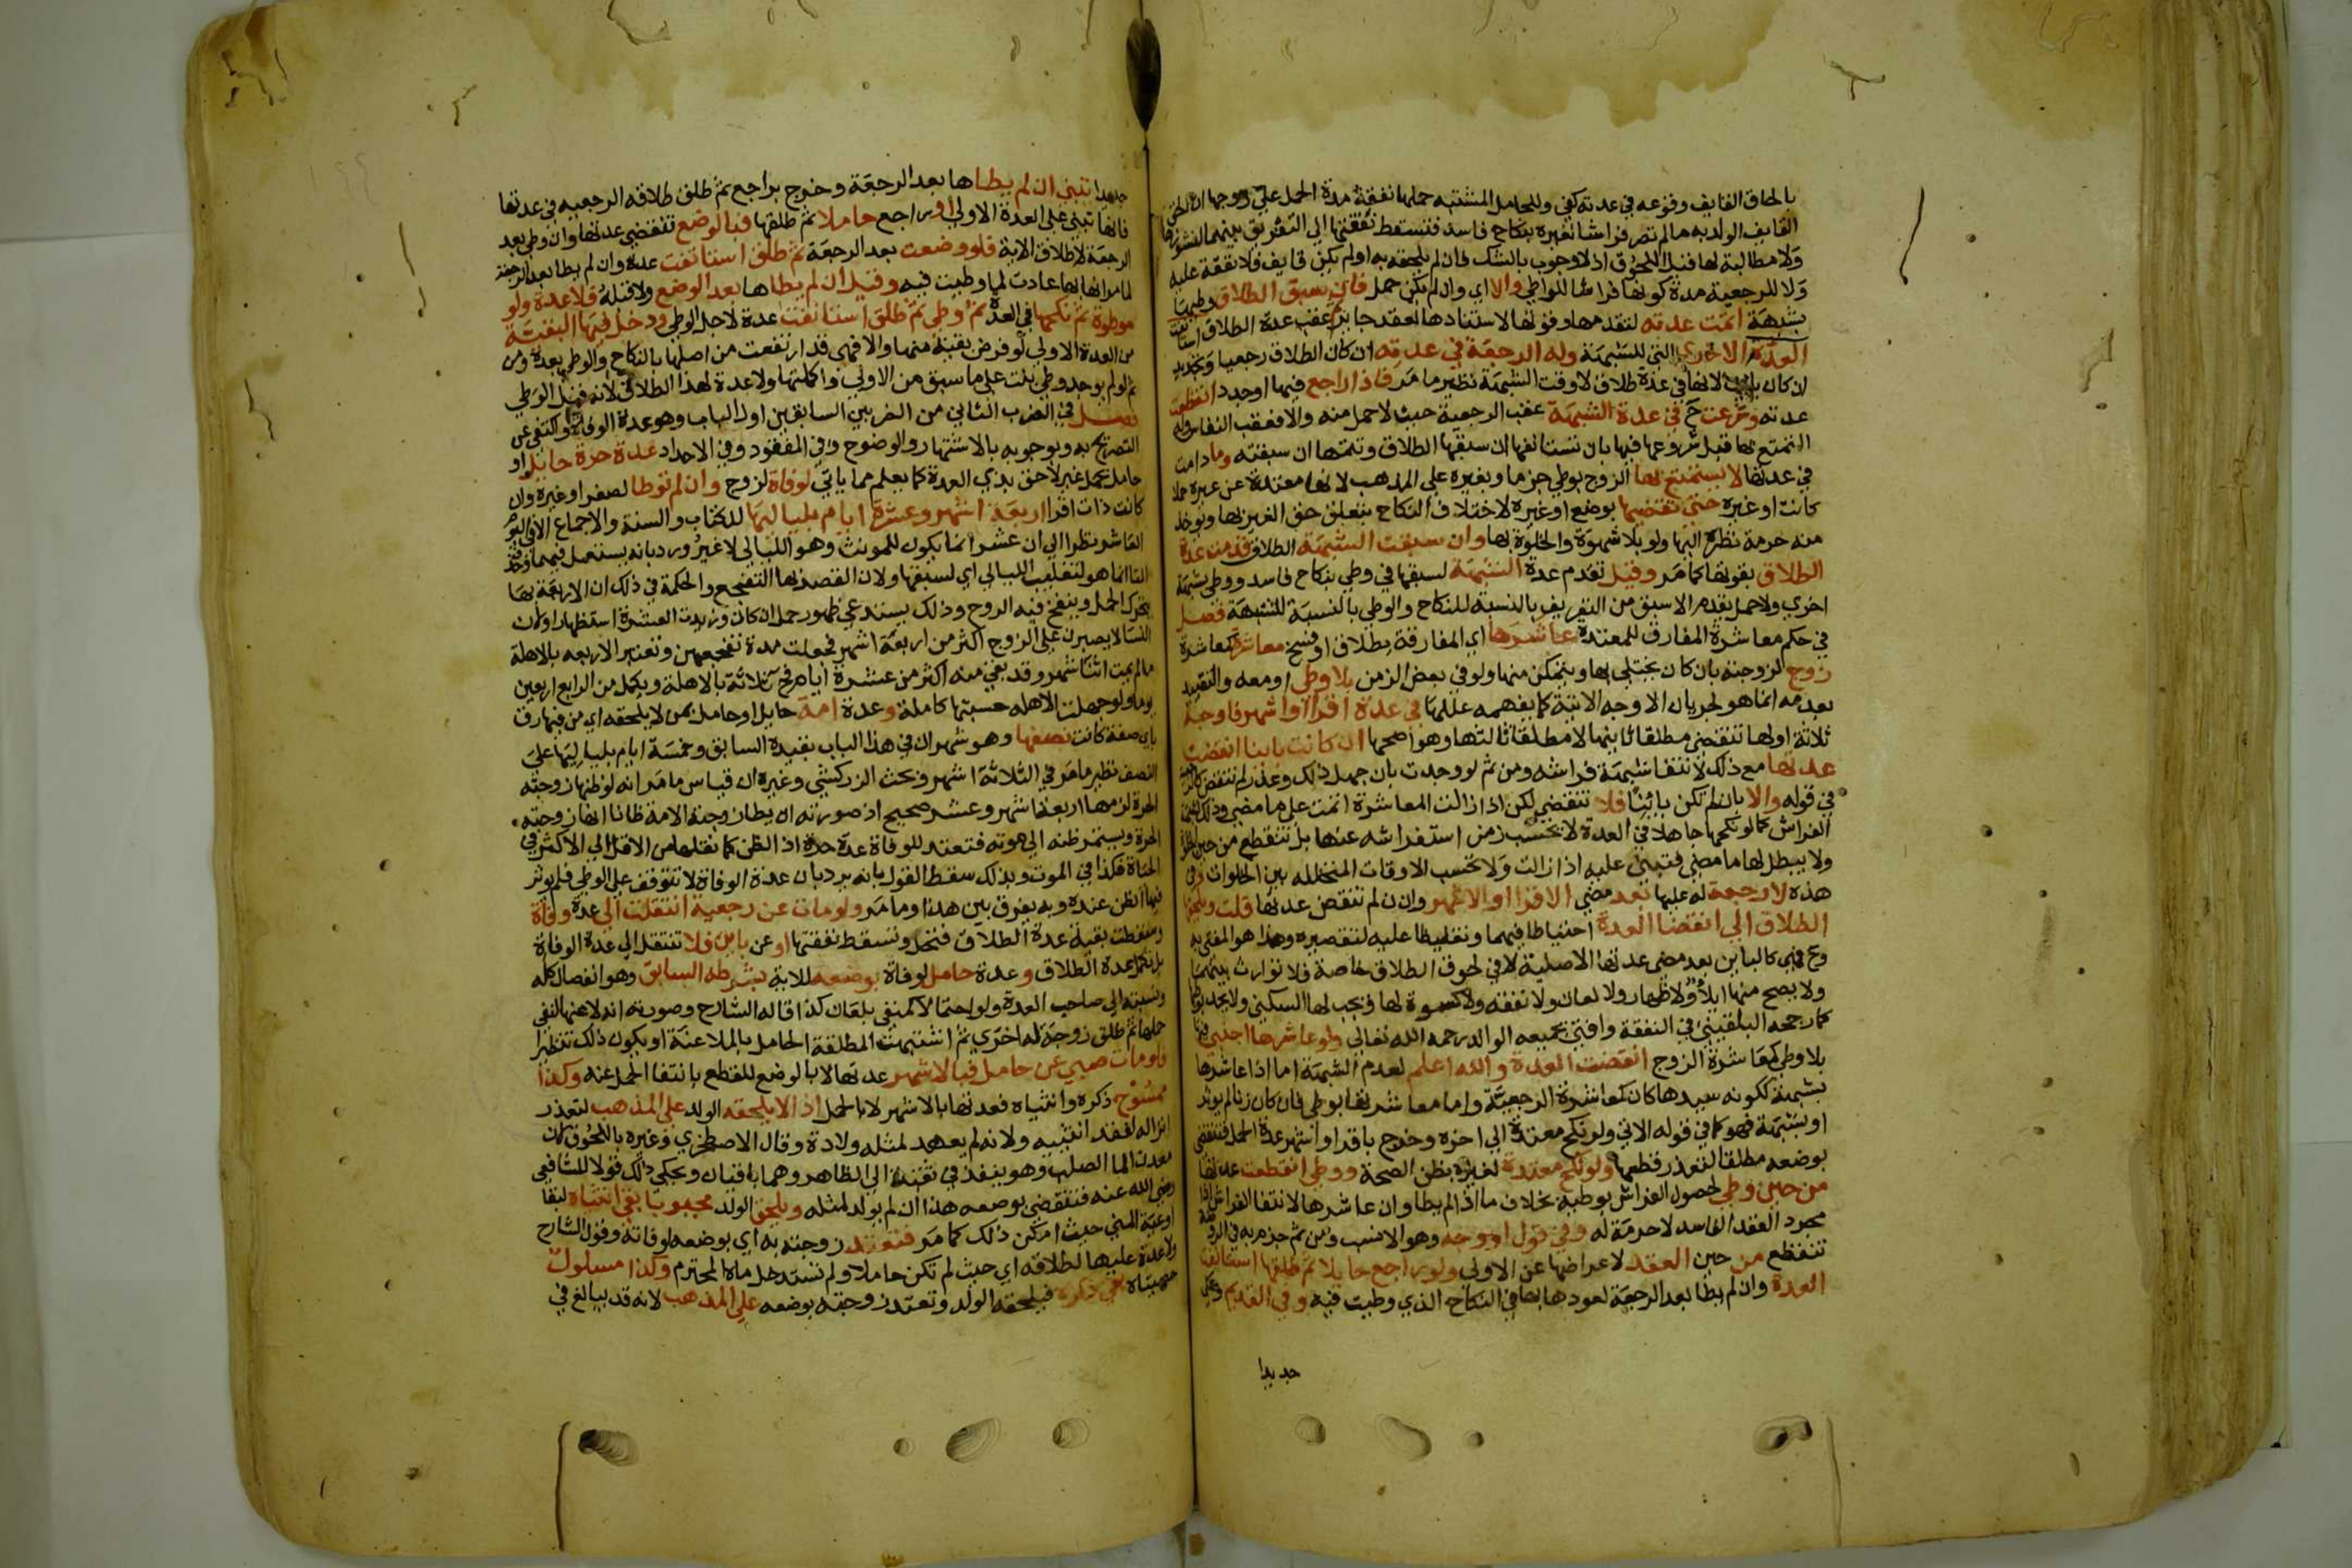 بالحاق القايف وقوعه في عدته كفى وللحامل المشتبه حملها نفقة مدة الحمل على زوجها ان الحق
القايف الولد به ما لم تصر فراشا لغيره بنكاح فاسد فتسقط نفقتها الى التفريق بينهما لنشوزها
ولا مطالبة لها قبل اللحوق اذ لا وجوب بالشك فان لم يلحقه به او لم يكن قايف فلا نفقة عليه
ولا للرجعية مدة كونها فراشا للواطي والا اي وان لم يكن حمل فان سبق الطلاق وطيها
بشبهة اتمت عدته لتقدمها وقوتها لاستنادها لعقد جايز عقب عدة الطلاق استانفت
العدة الاخرى التي للشبهة وله الرجعة في عدته ان كان الطلاق رجعيا وتجديد
ان كان لانها في عدة طلاق لا وقت الشبهة نظير ما مر فاذا راجع فيها او جدد انقطعت
عدته وشرعت ح في عدة الشبهة عقب الرجعية حيث لا حمل منه والا فعقب النفاس وله
التمتع بها قبل شروعها فيها بان تستانفها ان سبقها الطلاق وتتمها ان سبقته وما دامت
في عدتها لا يستمتع بها الزوج بوطي جزما وبغيره على المذهب لانها معتدة عن غيره حملا
كانت او غيره حتى تقضيها بوضع او غيره لاختلاف النكاح بتعلق حق الغير بها ويوخذ
منه حرمة نظره اليها ولو بلا شهوة والخلوة بها وان سبقت الشبهة الطلاق قدمت عدة
الطلاق لقوتها كما مر وقيل تقدم عدة الشبهة لسبقها في وطي بنكاح فاسد ووطي بشبهة
اخرى ولا حمل يقدم الاسبق من التفريق بالنسبة للنكاح والوطي بالنسبة للشبهة فصل
في حكم معاشرة المفارق للمعتدة عاشرها اي المفارقة بطلاق او فسخ معاشرة كمعاشرة
زوج لزوجته بان كان يختلي بها ويتمكن منها ولو في بعض الزمن بلا وطي او معه والتقييد
بعدمه انما هو لجريان الاوجه الاتية كما يفهمه عللها في عدة اقراء او اشهر فاوجه
ثلاثة اولها تنقضي مطلقا ثانيها لا مطلقا ثالثها وهو اصحها ان كانت باينا انقضت
عدتها مع ذلك لانتفا شبهة فراشه ومن ثم لو وجدت بان جهل ذلك وعذر لم تنقض كالرجعية
في قوله والا بان لم تكن باينا فلا تنقضي لكن اذا زالت المعاشرة اتمت على ما مضى وذلك لشبهة
الفراش كما لو نكحها جاهلا في العدة لا يحسب زمن استفراشه عنها بل تنقطع من حين الخلوة
ولا يبطل بها ما مضى فتبني عليه اذا زالت ولا تحسب الاوقات المتخلله بين الخلوات وفي
هذه لا رجعة له عليها بعد مضي الاقرا او الاشهر وان لم تنقض عدتها قلت ويلحقها
الطلاق الى انقضا العدة احتياطا فيهما وتغليظا عليه لتقصيره وهذا هو المفتى به
وح فهي كالباين بعد مضي عدتها الاصلية لا في لحوق الطلاق خاصة فلا توارث بينهما
ولا يصح منها ايلا ولا ظهار ولا لعان ولا نفقه ولا كسوة لها وتجب لها السكنى ولا يحد بوطيها
كما رجحه البلقيني في النفقة وافتى بجميعه الوالد رحمه الله تعالى ولو عاشرها اجنبي فيها
بلا وطي كمعاشرة الزوج انقضت العدة والله اعلم لعدم الشبهة اما اذا عاشرها
بشبهة ككونه سيدها كان كمعاشرة الرجعية واما معاشرتها بوطي فان كان زنا لم يوثر
او بشبهة فهو كما في قوله الاتي ولو نكح معتدة الى اخره وخرج باقرا او اشهر عدة الحمل فتنقضي
بوضعه مطلقا لتعذر قطعها ولو نكح معتدة لغيره بظن الصحة ووطي انقطعت عدتها
من حين وطي لحصول الفراش بوطيه بخلاف ما اذا لم يطا وان عاشرها لانتفا الفراش اذ
مجرد العقد الفاسد لا حرمة له وفي قول او وجه وهو الانسب ومن ثم جزم به في الروضة
تنقطع من حين العقد لاعراضها عن الاولى ولو راجع حايلا ثم طلقها استانفت
العدة وان لم يطا بعد الرجعة لعودها بها في النكاح الذي وطيت فيه وفي القديم وحكي
جديدا
جديدا تبني ان لم يطاها بعد الرجعة وخرج براجع ثم طلق طلاقه الرجعيه في عدتها
فانها تبني على العدة الاولى او راجع حاملا ثم طلقها فبالوضع تنقضي عدتها وان وطي بعد
الرجعة لاطلاق الاية فلو وضعت بعد الرجعة ثم طلق استانفت عدة وان لم يطا بعد الرجعة
لما مر انها بها عادت لما وطيت فيه وقيل ان لم يطاها بعد الوضع ولا قبله فلا عدة ولو
موطوة ثم نكحها في العدة ثم وطي ثم طلق استانفت عدة لاجل الوطي ودخل فيها البقية
من العدة الاولى لو فرض بقية منها والا فهي قد ارتفعت من اصلها بالنكاح والوطي بعده ومن
ثم لو لم يوجد وطي بنت على ما سبق من الاولى واكملتها ولا عدة لهذا الطلاق لانه قبل الوطي
فصل في الضرب الثاني من الضربين السابقين اول الباب وهو عدة الوفاة واكتفى عن
التصريح به وبوجوبه بالاشتهار والوضوح وفي المفقود وفي الاحداد عدة حرة حايل او
حامل بحمل غير لاحق بذي العدة كما يعلم مما ياتي لوفاة لزوج وان لم توطا لصغر او غيره وان
كانت ذات اقرا اربعة اشهر وعشرة ايام بلياليها للكتاب والسنة والاجماع الا في اليوم
العاشر نظرا الى ان عشرا انما يكون للمونث وهو الليالي لا غير ورد بانه يستعمل فيهما وحذف
التا انما هو لتغليب الليالي اي لسبقها ولان القصد بها التفجع والحكمة في ذلك ان الاربعة بها
يتحرك الحمل وينفخ فيه الروح وذلك يستدعي ظهور حمل ان كان وزيدت العشرة استظهارا ولان
النسا لا يصبرن على الزوج اكثر من اربعة اشهر فجعلت مدة تفجعهن وتعتبر الاربعه بالاهلة
ما لم يمت اثنا شهر وقد بقي منه اكثر من عشرة ايام فح ثلاثة بالاهلة ويكمل من الرابع اربعين
يوما ولو جهلت الاهله حسبتها كاملة وعدة امة حايل او حامل بمن لا يلحقه اي من فيها رق
باي صفة كانت نصفها وهو شهران في هذا الباب بقيده السابق وخمسة ايام بلياليها على
النصف نظير ما مر في الثلاثة اشهر وبحث الزركشي وغيره ان قياس ما مر انه لو ظنها زوجته
الحرة لزمها اربعة اشهر وعشر صحيح اذ صورته ان يطا زوجته الامة ظانا انها زوجته
الحرة ويستمر ظنه الى موته فتعتد للوفاة عدة حرة اذ الظن كما نقلها من الاقل الى الاكثر في
الحياة فكذا في الموت وبذلك سقط القول بانه يرد بان عدة الوفاة لا تتوقف على الوطي فلم يوثر
فيها الظن عنده وبه يفرق بين هذا وما مر ولو مات عن رجعية انتقلت الى عدة وفاة
وسقطت بقية عدة الطلاق فتحد وتسقط نفقتها او عن باين فلا تنتقل الى عدة الوفاة
بل تكمل عدة الطلاق وعدة حامل لوفاة بوضعه للاية بشرطه السابق وهو انفصال كله
ونسبته الى صاحب العدة ولو احتمالا كمنفي بلعان كذا قاله الشارح وصورته انه لاعنها لنفي
حملها ثم طلق زوجة له اخرى ثم اشتبهت المطلقة الحامل بالملاعنة او يكون ذلك تنظيرا
فلو مات صبي عن حامل فبالاشهر عدتها لا بالوضع للقطع بانتفا الحمل عنه وكذا
ممسوح ذكره وانثياه فعدتها بالاشهر لا بالحمل اذ لا يلحقه الولد على المذهب لتعذر
انزاله لفقد انثييه ولانه لم يعهد لمثله ولادة وقال الاصطخري وغيره باللحوق لان
معدن الما الصلب وهو ينفذ في ثقبة الى الظاهر وهما باقيان ويحكى ذلك قولا للشافعي
رضي الله عنه فتنقضي بوضعه هذا ان لم يولد لمثله ويلحق الولد مجبوبا بقي انثياه لبقا
اوعية المني حيث امكن ذلك كما مر فتعتد زوجته به اي بوضعه لوفاته وقول الشارح
ولا عدة عليها لطلاقه اي حيث لم تكن حاملا ولم تستدخل ماه المحترم وكذا مسلول
خصيتاه بقي ذكره فيلحقه الولد وتعتد زوجته بوضعه على المذهب لانه قد يبالغ في